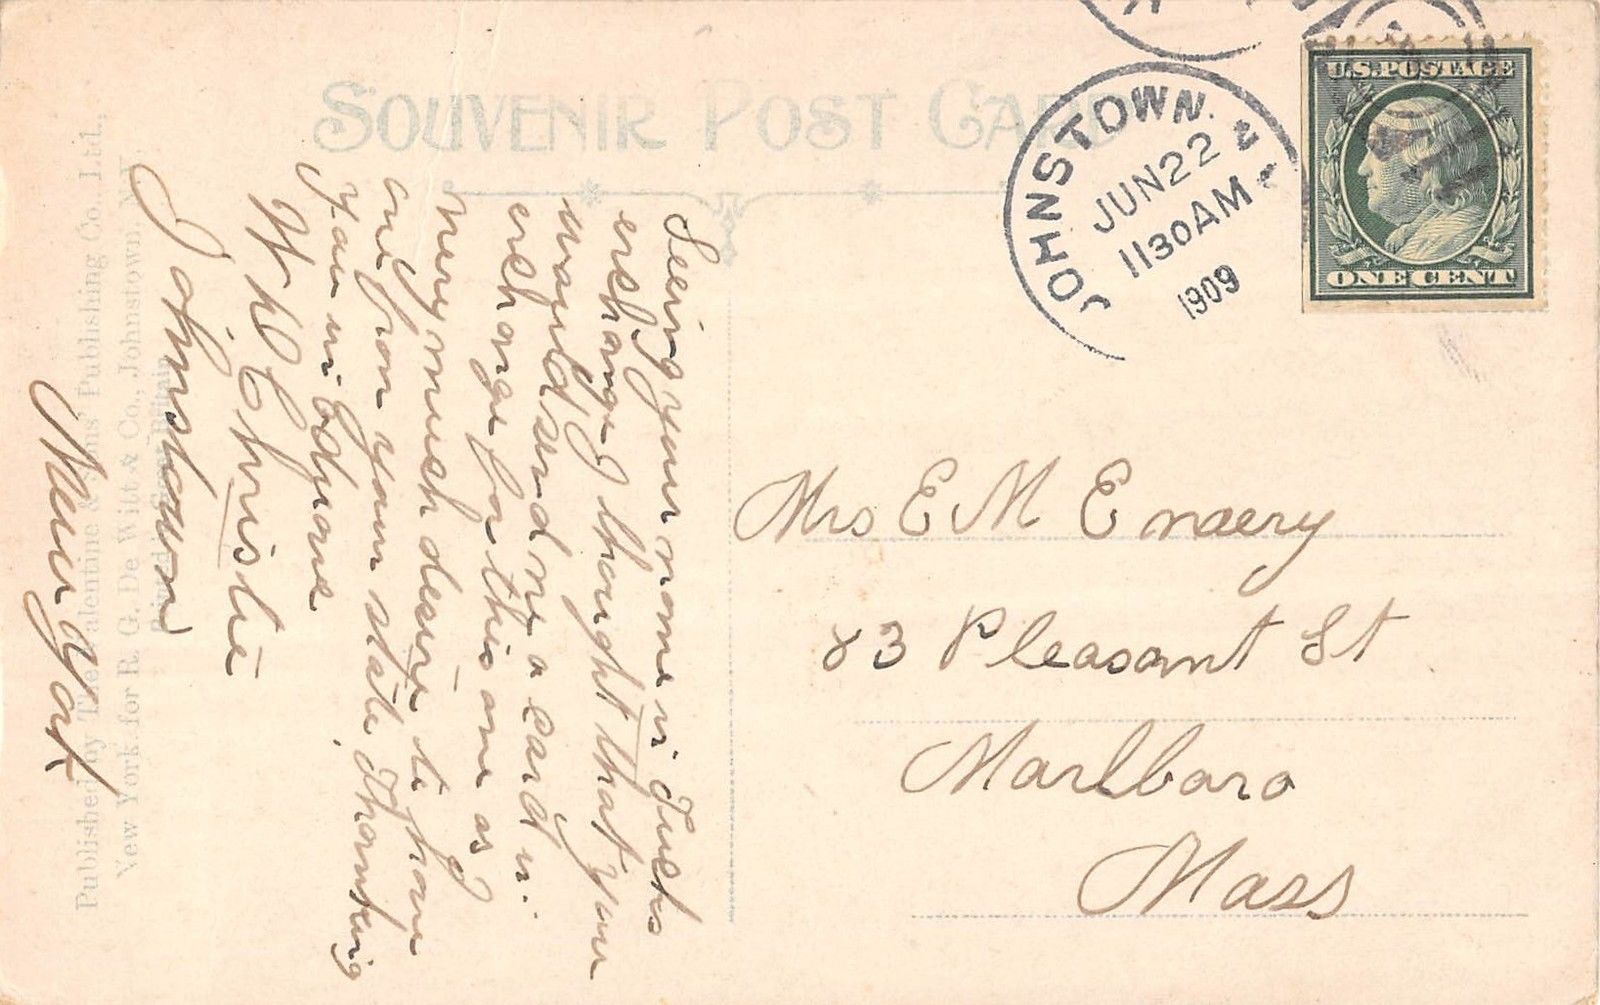 SOUVENIR POST CARD
JOHNSTOWN. N
JUN 22
1130AM
1909
U.S.POSTAGE
ONE CENT
Mrs E M Emery
83 Pleasant St
Marlboro
Mass
Seeing your name in Tucks
exchange I thought that you
would send me a card in
exchange for this one as I
very much desire to have
one from your state, Thanking
you in
W H Christie
Johnstown
New York
Published by The Valentine & Sons' Publishing Co., Ltd.,
New York for R. G. De Witt & Co., Johnstown, N.Y.